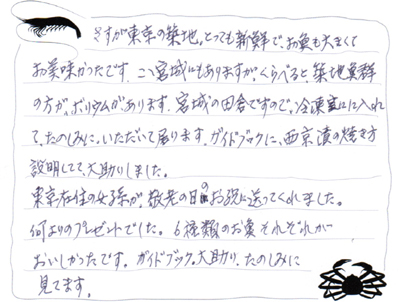 さすが東京の築地。とっても新鮮で、お魚も大きくて
お美味かったです。ここ宮城にもありますが、くらべると築地魚群
の方が、ボリウムがあります。宮城の田舎ですので、冷凍室に入れ
て、たのしみに、いただいて居ります。ガイドブックに、西京漬の焼き方
説明してて、大助りしました。
東京在住の女孫が、敬老の日のお祝に送ってくれました。
何よりのプレゼントでした。6種類のお魚それぞれが
おいしかったです。ガイドブック。大助り、たのしみに
見てます。